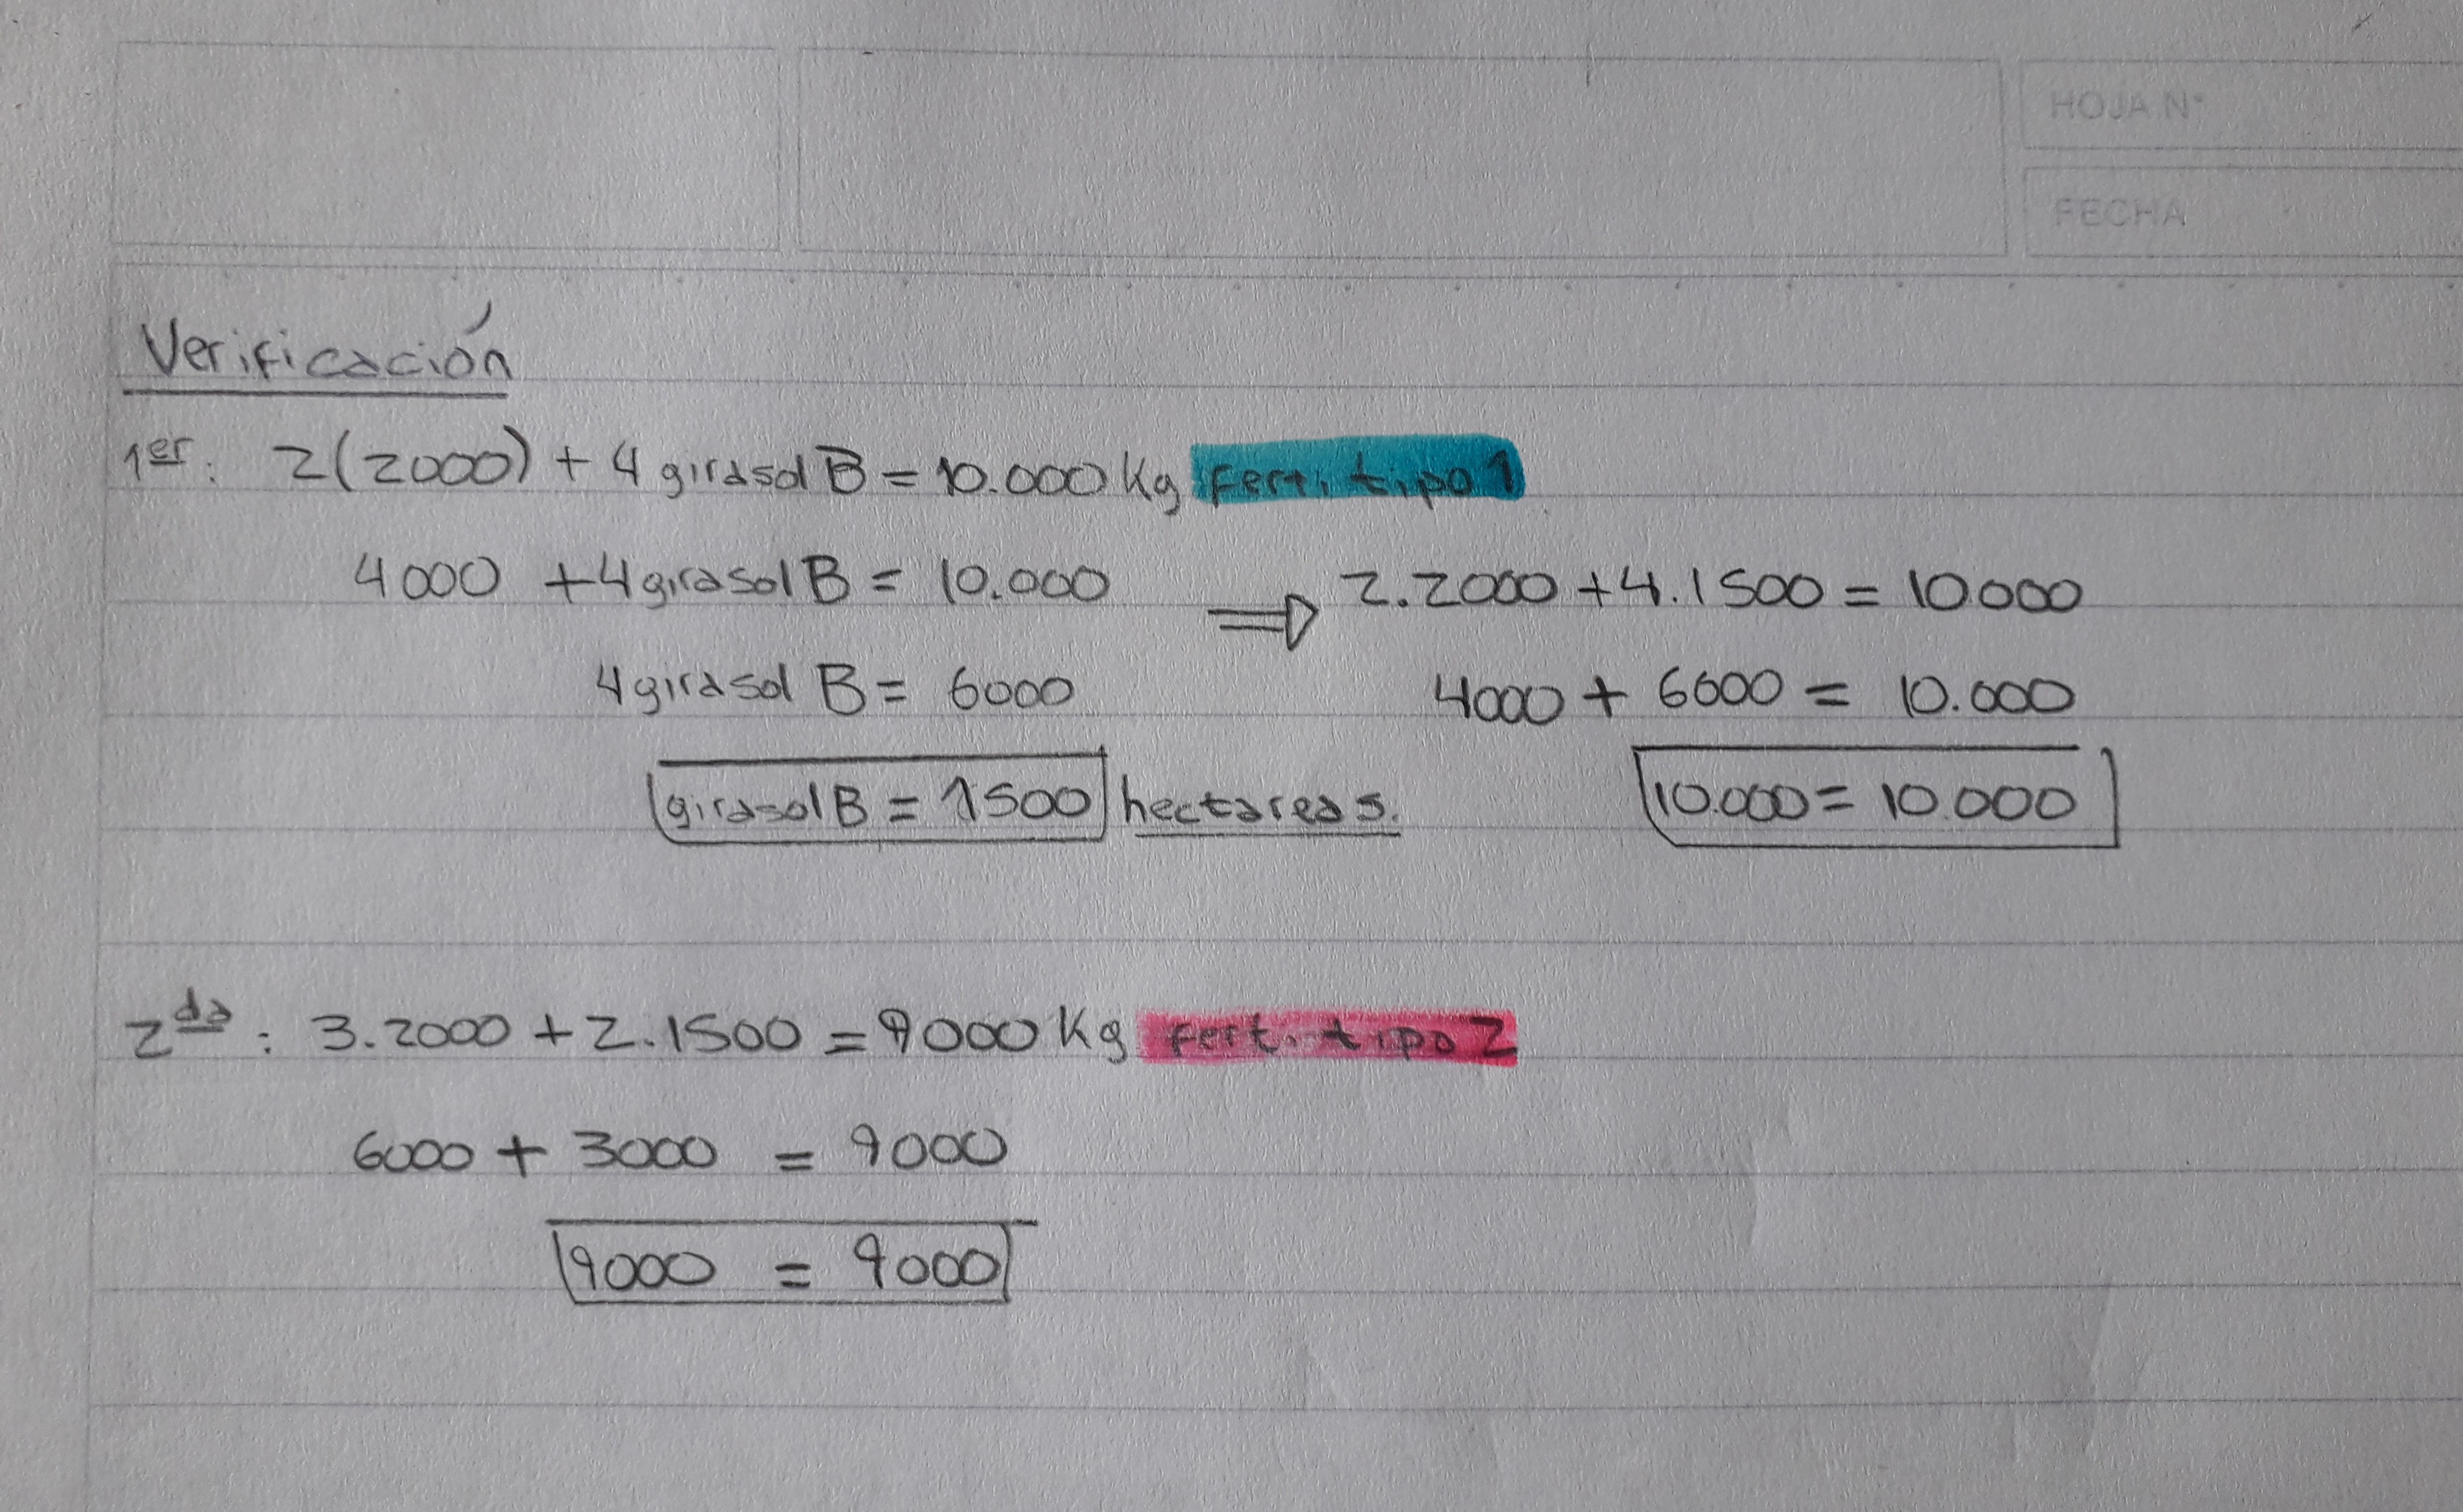 HOJA N°
FECHA
Verificación
1er: 2(2000) + 4 girasol B = 10.000 Kg fert. tipo 1
4000 + 4 girasol B = 10.000
4 girasol B = 6000
girasol B = 1500 hectareas.
⇒ 2.2000 + 4.1500 = 10000
4000 + 6000 = 10.000
10.000 = 10.000
2da: 3.2000 + 2.1500 = 9000 Kg fert. tipo 2
6000 + 3000 = 9000
9000 = 9000